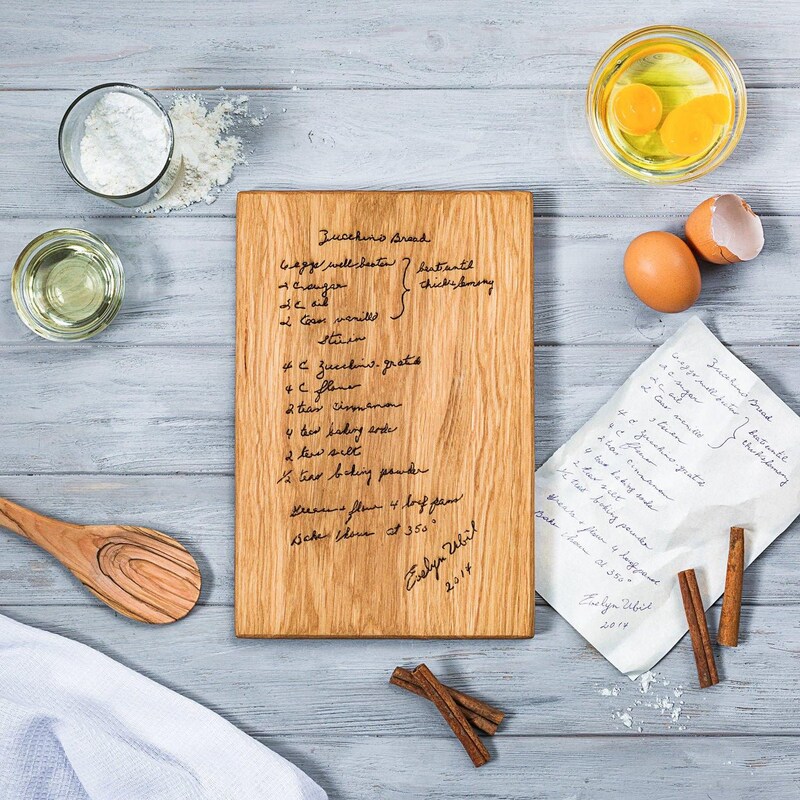 Zucchino Bread
6 eggs well beaten } beat until
2 C sugar thick & lemony
2 C oil
2 teas. vanilla
Stir in
4 C Zucchino grated
4 C flour
2 teas cinnamon
4 teas baking soda
2 teas salt
1/2 teas baking powder
Grease & flour 4 loaf pans
Bake 1 hour at 350°
Evelyn Ubil
2014
Zucchino Bread
6 eggs well beaten } beat until
2 C sugar thick & lemony
2 C oil
2 teas vanilla
Stir in
4 C Zucchino grated
4 C flour
2 teas cinnamon
4 teas baking soda
2 teas salt
1/2 teas baking powder
Grease & flour 4 loaf pans
Bake 1 hour at 350°
Evelyn Ubil
2014